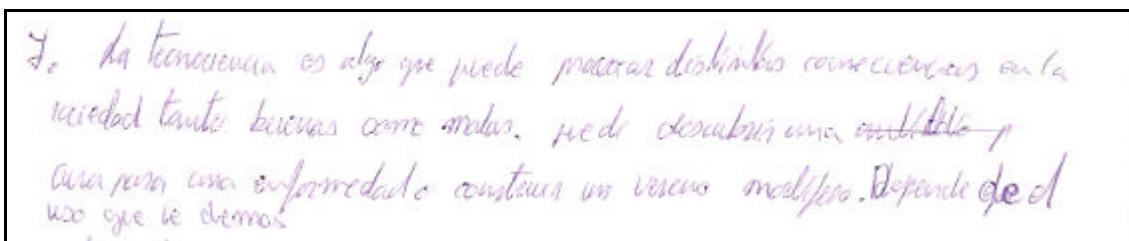 7. La tecnociencia es algo que puede provocar distintas consecuencias en la
sociedad tanto buenas como malas. puede descubrir una
cura para una enfermedad o construir un veneno mortífero. Depende del
uso que le demos